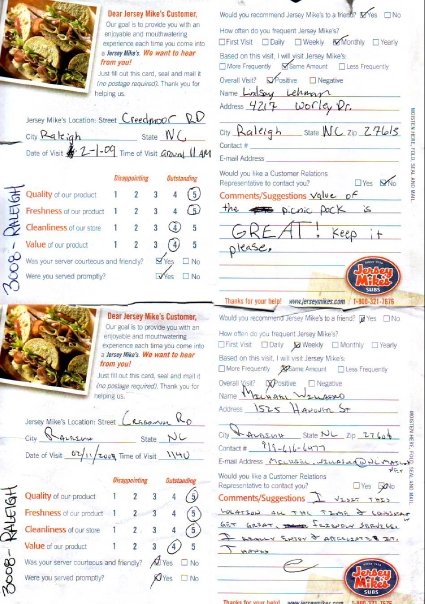 Dear Jersey Mike's Customer,
Our goal is to provide you with an
enjoyable and mouthwatering
experience each time you come into
a Jersey Mike's. We want to hear
from you!
Just fill out this card, seal and mail it
(no postage required). Thank you for
helping us.
Jersey Mike's Location: Street Creedmoor RD
City Raleigh State NC
Date of Visit 2-1-09 Time of Visit around 11 AM
Disappointing Outstanding
Quality of our product 1 2 3 4 5
Freshness of our product 1 2 3 4 5
Cleanliness of our store 1 2 3 4 5
Value of our product 1 2 3 4 5
Was your server courteous and friendly? Yes No
Were you served promptly? Yes No
3008 - RALEIGH
Would you recommend Jersey Mike's to a friend? Yes No
How often do you frequent Jersey Mike's?
First Visit Daily Weekly Monthly Yearly
Based on this visit, I will visit Jersey Mike's:
More Frequently Same Amount Less Frequently
Overall Visit? Positive Negative
Name Lindsey Lehman
Address 4217 Worley Dr.
City Raleigh State NC Zip 27613
Contact #
E-mail Address
Would you like a Customer Relations
Representative to contact you? Yes No
Comments/Suggestions value of
the picnic pack is
GREAT! Keep it
please.
MOISTEN HERE, FOLD, SEAL AND MAIL
SINCE 1956
Jersey
Mike's
SUBS
Thanks for your help! www.jerseymikes.com 1-800-321-7676
Dear Jersey Mike's Customer,
Our goal is to provide you with an
enjoyable and mouthwatering
experience each time you come into
a Jersey Mike's. We want to hear
from you!
Just fill out this card, seal and mail it
(no postage required). Thank you for
helping us.
Jersey Mike's Location: Street Creedmoor RD
City Raleigh State NC
Date of Visit 02/11/2009 Time of Visit 1140
Disappointing Outstanding
Quality of our product 1 2 3 4 5
Freshness of our product 1 2 3 4 5
Cleanliness of our store 1 2 3 4 5
Value of our product 1 2 3 4 5
Was your server courteous and friendly? Yes No
Were you served promptly? Yes No
3008 - RALEIGH
Would you recommend Jersey Mike's to a friend? Yes No
How often do you frequent Jersey Mike's?
First Visit Daily Weekly Monthly Yearly
Based on this visit, I will visit Jersey Mike's:
More Frequently Same Amount Less Frequently
Overall Visit? Positive Negative
Name Michael
Address 1525 St
City Raleigh State NC Zip
Contact #
E-mail Address
Would you like a Customer Relations
Representative to contact you? Yes No
Comments/Suggestions I visit this
location all the time &
get great, friendly service.
I really enjoy & appreciate it.
Thanks
MOISTEN HERE, FOLD, SEAL AND MAIL
SINCE 1956
Jersey
Mike's
SUBS
Thanks for your help! www.jerseymikes.com 1-800-321-7676